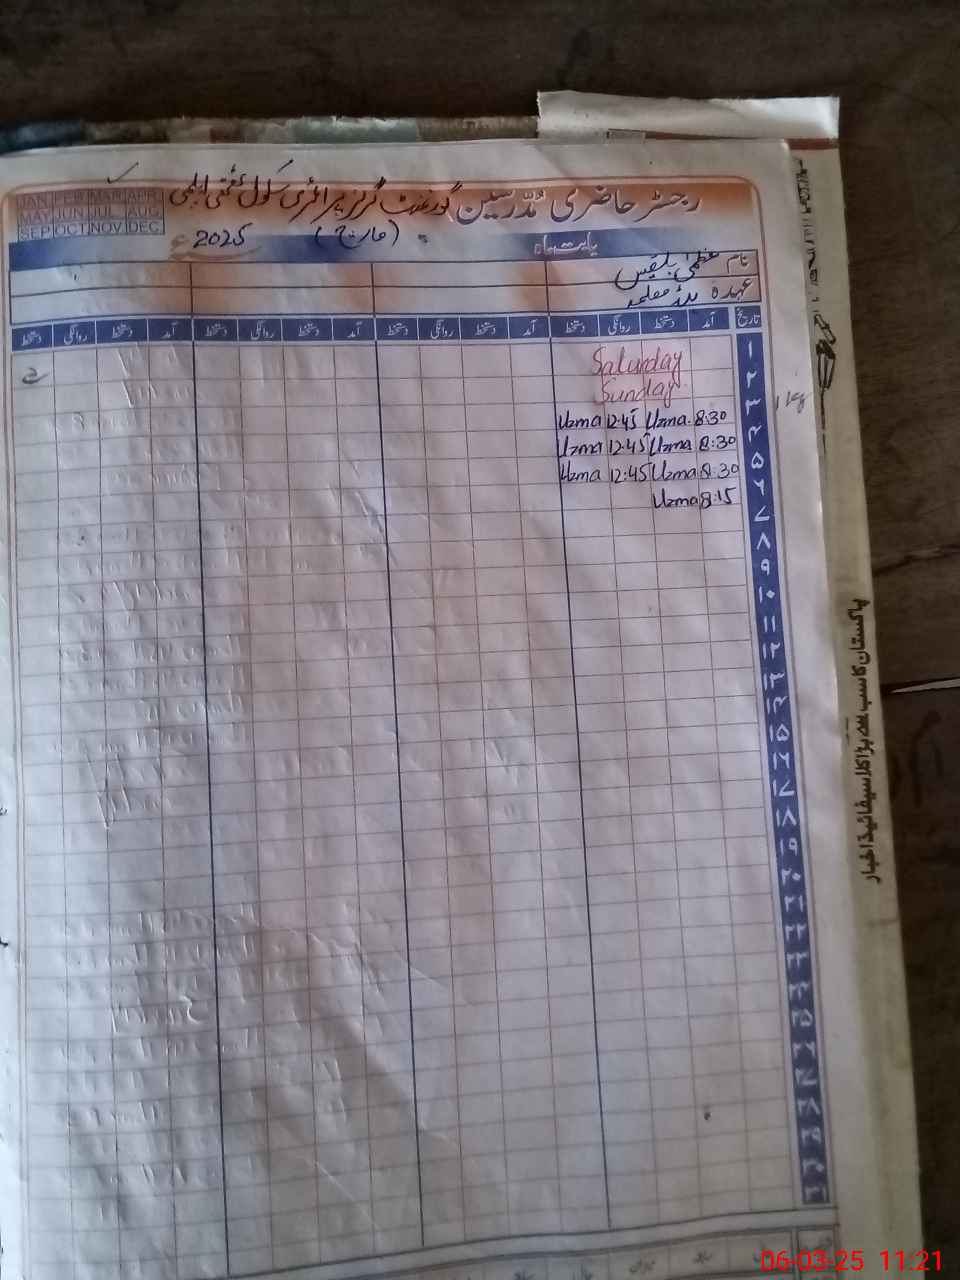 JAN FEB MAR APR
MAY JUN JUL AUG
SEP OCT NOV DEC
رجسٹر حاضری مُدّرسین گورنمنٹ گرلز پرائمری سکول
بابت ماہ (مارچ) 2025
نام عظمیٰ بلقیس
عہدہ ہیڈ معلمہ
تاریخ آمد دستخط روانگی دستخط آمد دستخط روانگی دستخط آمد دستخط روانگی دستخط آمد دستخط روانگی دستخط
۱ Saturday
۲ Sunday
۳ 8:30 Uzma 12:45 Uzma
۴ 8:30 Uzma 12:45 Uzma
۵ 8:30 Uzma 12:45 Uzma
۶ 8:15 Uzma
۷
۸
۹
۱۰
۱۱
۱۲
۱۳
۱۴
۱۵
۱۶
۱۷
۱۸
۱۹
۲۰
۲۱
۲۲
۲۳
۲۴
۲۵
۲۶
۲۷
۲۸
۲۹
۳۰
۳۱
پاکستان کا سب سے بڑا کلاسیفائیڈ اخبار
06-03-25 11:21